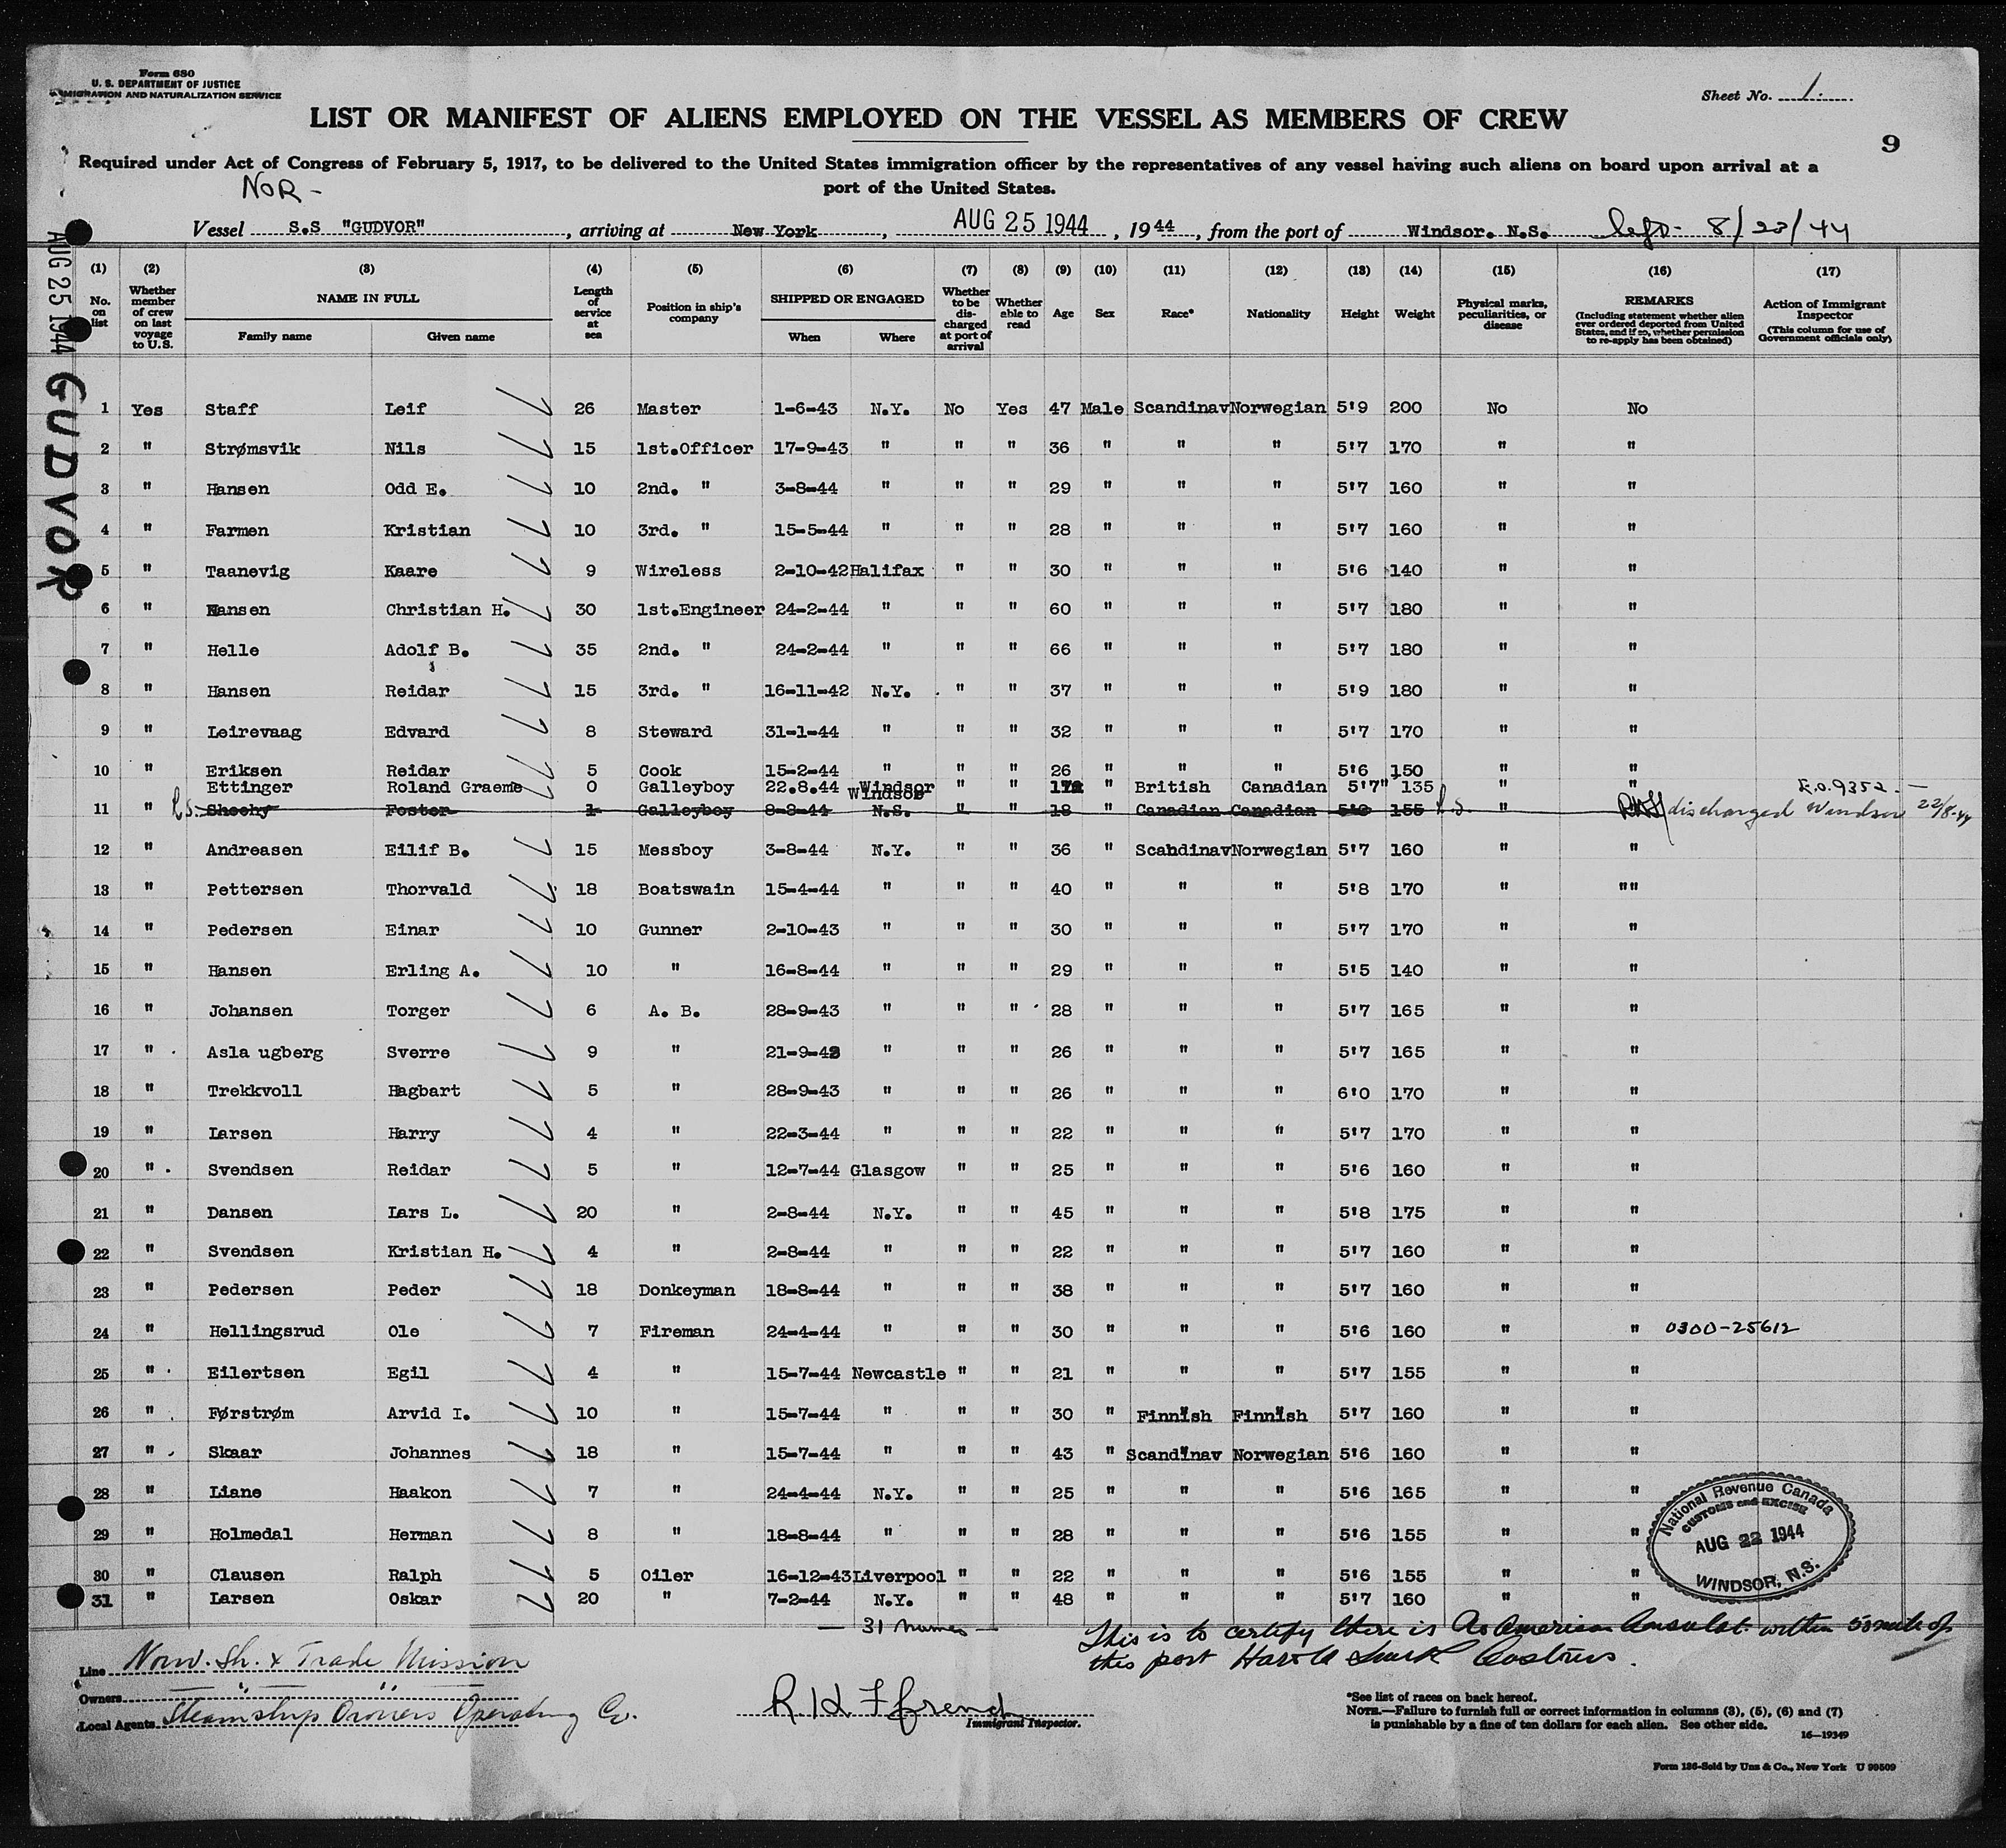 Form 680
U. S. DEPARTMENT OF JUSTICE
IMMIGRATION AND NATURALIZATION SERVICE
Sheet No. 1.
LIST OR MANIFEST OF ALIENS EMPLOYED ON THE VESSEL AS MEMBERS OF CREW
9
Required under Act of Congress of February 5, 1917, to be delivered to the United States immigration officer by the representatives of any vessel having such aliens on board upon arrival at a
port of the United States.
NOR -
Vessel S.S "GUDVOR", arriving at New York, AUG 25 1944, 1944, from the port of Windsor. N.S. 8/23/44
AUG 25 1944
GUDVOR
(1) No. on list
(2) Whether member of crew on last voyage to U.S.
(3) NAME IN FULL Family name Given name
(4) Length of service at sea
(5) Position in ship's company
(6) SHIPPED OR ENGAGED When Where
(7) Whether to be discharged at port of arrival
(8) Whether able to read
(9) Age
(10) Sex
(11) Race*
(12) Nationality
(13) Height
(14) Weight
(15) Physical marks, peculiarities, or disease
(16) REMARKS (Including statement whether alien ever ordered deported from United States, and if so, whether permission to re-apply has been obtained)
(17) Action of Immigrant Inspector (This column for use of Government officials only)
1 Yes Staff Leif 26 Master 1-6-43 N.Y. No Yes 47 Male Scandinav Norwegian 5'9 200 No No
2 " Strømsvik Nils 15 1st.Officer 17-9-43 " " " 36 " " " 5'7 170 " "
3 " Hansen Odd E. 10 2nd. " 3-8-44 " " " 29 " " " 5'7 160 " "
4 " Farmen Kristian 10 3rd. " 15-5-44 " " " 28 " " " 5'7 160 " "
5 " Taanevig Kaare 9 Wireless 2-10-42 Halifax " " 30 " " " 5'6 140 " "
6 " Hansen Christian H. 30 1st.Engineer 24-2-44 " " " 60 " " " 5'7 180 " "
7 " Helle Adolf B. 35 2nd. " 24-2-44 " " " 66 " " " 5'7 180 " "
8 " Hansen Reidar 15 3rd. " 16-11-42 N.Y. " " 37 " " " 5'9 180 " "
9 " Leirevaag Edvard 8 Steward 31-1-44 " " " 32 " " " 5'7 170 " "
10 " Eriksen Reidar 5 Cook 15-2-44 " " " 26 " " " 5'6 150 " "
Ettinger Roland Graeme 0 Galleyboy 22.8.44 Windsor " " " British Canadian 5'7" 135 " " E.O.9352.-
11 " Sheehy Foster 1 Galleyboy 8-8-44 Windsor N.S. " " 18 " Canadian Canadian 155 " discharged Windsor 22/8-44
12 " Andreasen Eilif B. 15 Messboy 3-8-44 N.Y. " " 36 " Scandinav Norwegian 5'7 160 " "
13 " Pettersen Thorvald 18 Boatswain 15-4-44 " " " 40 " " " 5'8 170 " ""
14 " Pedersen Einar 10 Gunner 2-10-43 " " " 30 " " " 5'7 170 " "
15 " Hansen Erling A. 10 " 16-8-44 " " " 29 " " " 5'5 140 " "
16 " Johansen Torger 6 A. B. 28-9-43 " " " 28 " " " 5'7 165 " "
17 " Asla ugberg Sverre 9 " 21-9-43 " " " 26 " " " 5'7 165 " "
18 " Trekkvoll Hagbart 5 " 28-9-43 " " " 26 " " " 6'0 170 " "
19 " Larsen Harry 4 " 22-3-44 " " " 22 " " " 5'7 170 " "
20 " Svendsen Reidar 5 " 12-7-44 Glasgow " " 25 " " " 5'6 160 " "
21 " Dansen Lars L. 20 " 2-8-44 N.Y. " " 45 " " " 5'8 175 " "
22 " Svendsen Kristian H. 4 " 2-8-44 " " " 22 " " " 5'7 160 " "
23 " Pedersen Peder 18 Donkeyman 18-8-44 " " " 38 " " " 5'7 160 " "
24 " Hellingsrud Ole 7 Fireman 24-4-44 " " " 30 " " " 5'6 160 " " 0300-25612
25 " Eilertsen Egil 4 " 15-7-44 Newcastle " " 21 " " " 5'7 155 " "
26 " Førstrøm Arvid I. 10 " 15-7-44 " " " 30 " Finnish Finnish 5'7 160 " "
27 " Skaar Johannes 18 " 15-7-44 " " " 43 " Scandinav Norwegian 5'6 160 " "
28 " Liane Haakon 7 " 24-4-44 N.Y. " " 25 " " " 5'6 165 " "
29 " Holmedal Herman 8 " 18-8-44 " " " 28 " " " 5'6 155 " "
30 " Clausen Ralph 5 Oiler 16-12-43 Liverpool " " 22 " " " 5'6 155 " "
31 " Larsen Oskar 20 " 7-2-44 N.Y. " " 48 " " " 5'7 160 " "
National Revenue Canada
CUSTOMS and EXCISE
AUG 22 1944
WINDSOR, N.S.
— 31 names —
This is to certify there is no American Consulat within 50 mile of
this port Customs.
Line Norw. Sh. & Trade Mission
Owners " "
Local Agents Steamship Owners Operating Co.
R H Ffrend
Immigrant Inspector.
*See list of races on back hereof.
NOTE.—Failure to furnish full or correct information in columns (3), (5), (6) and (7)
is punishable by a fine of ten dollars for each alien. See other side.
16—19349
Form 136-Sold by Unz & Co., New York U 99509